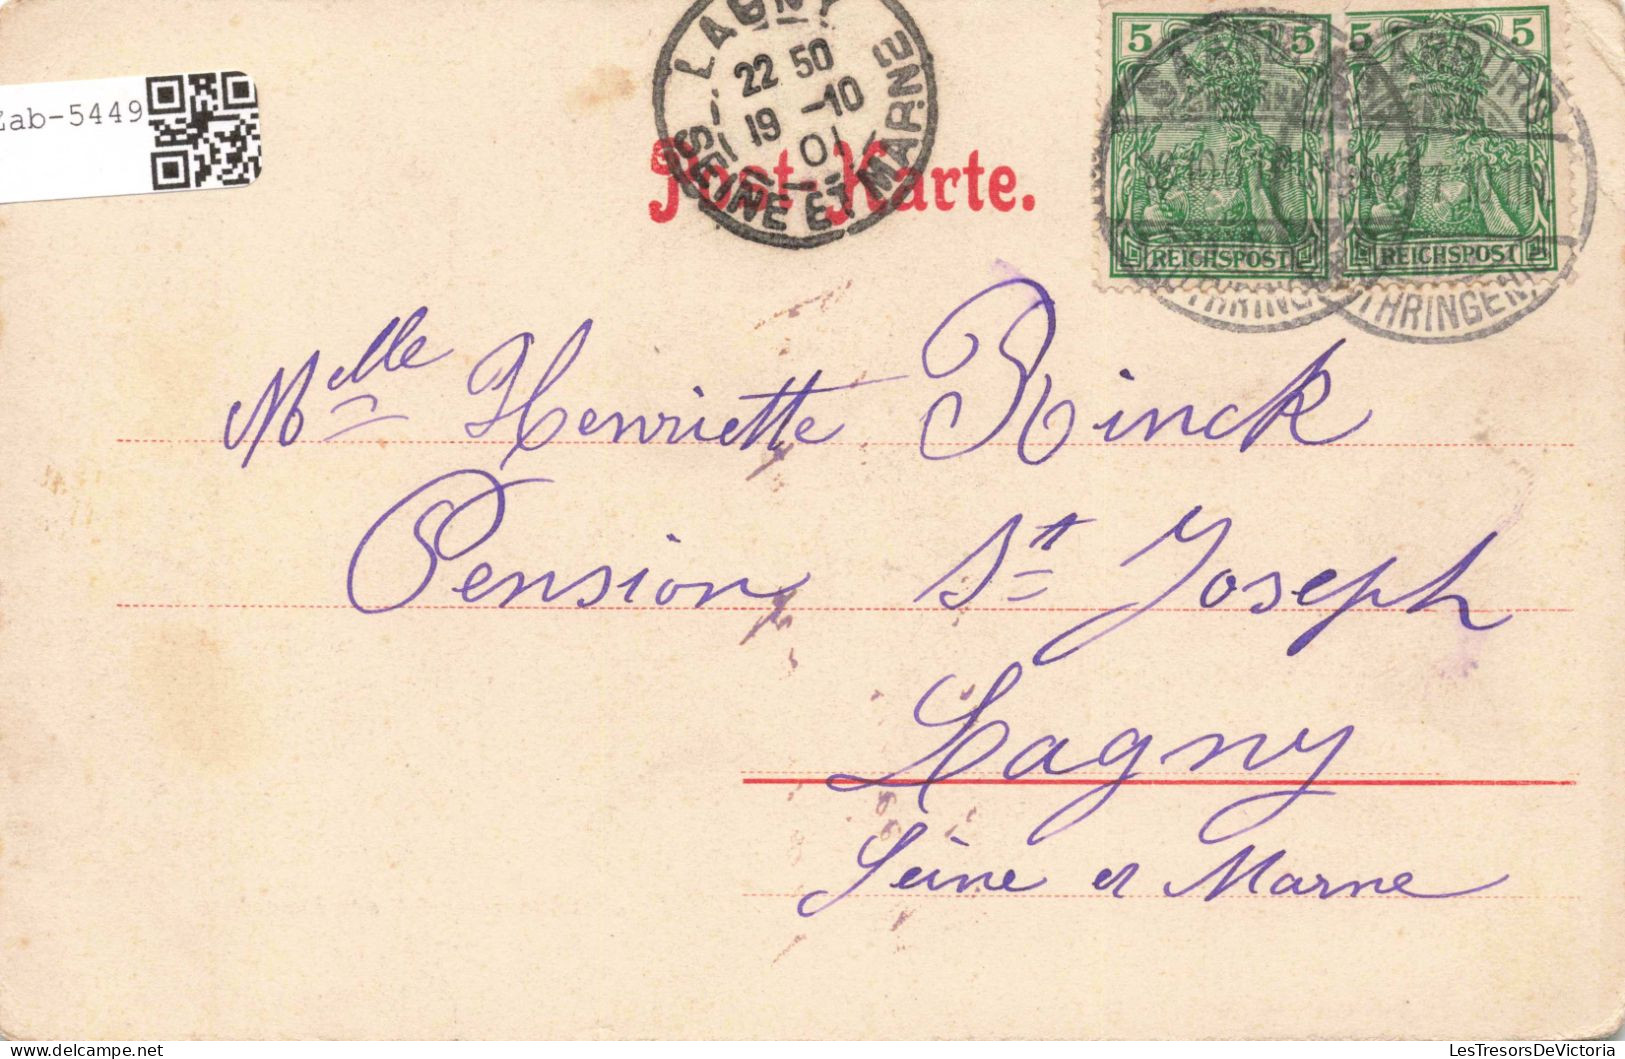 LAGNY
22 50
19 -10
01
SEINE ET MARNE
5 5
5 5
REICHSPOST
REICHSPOST
THRINGEN
Zab-5449
Post-Karte.
Melle Henriette Rinck
Pension St Joseph
Lagny
Seine et Marne
LesTresorsDeVictoria